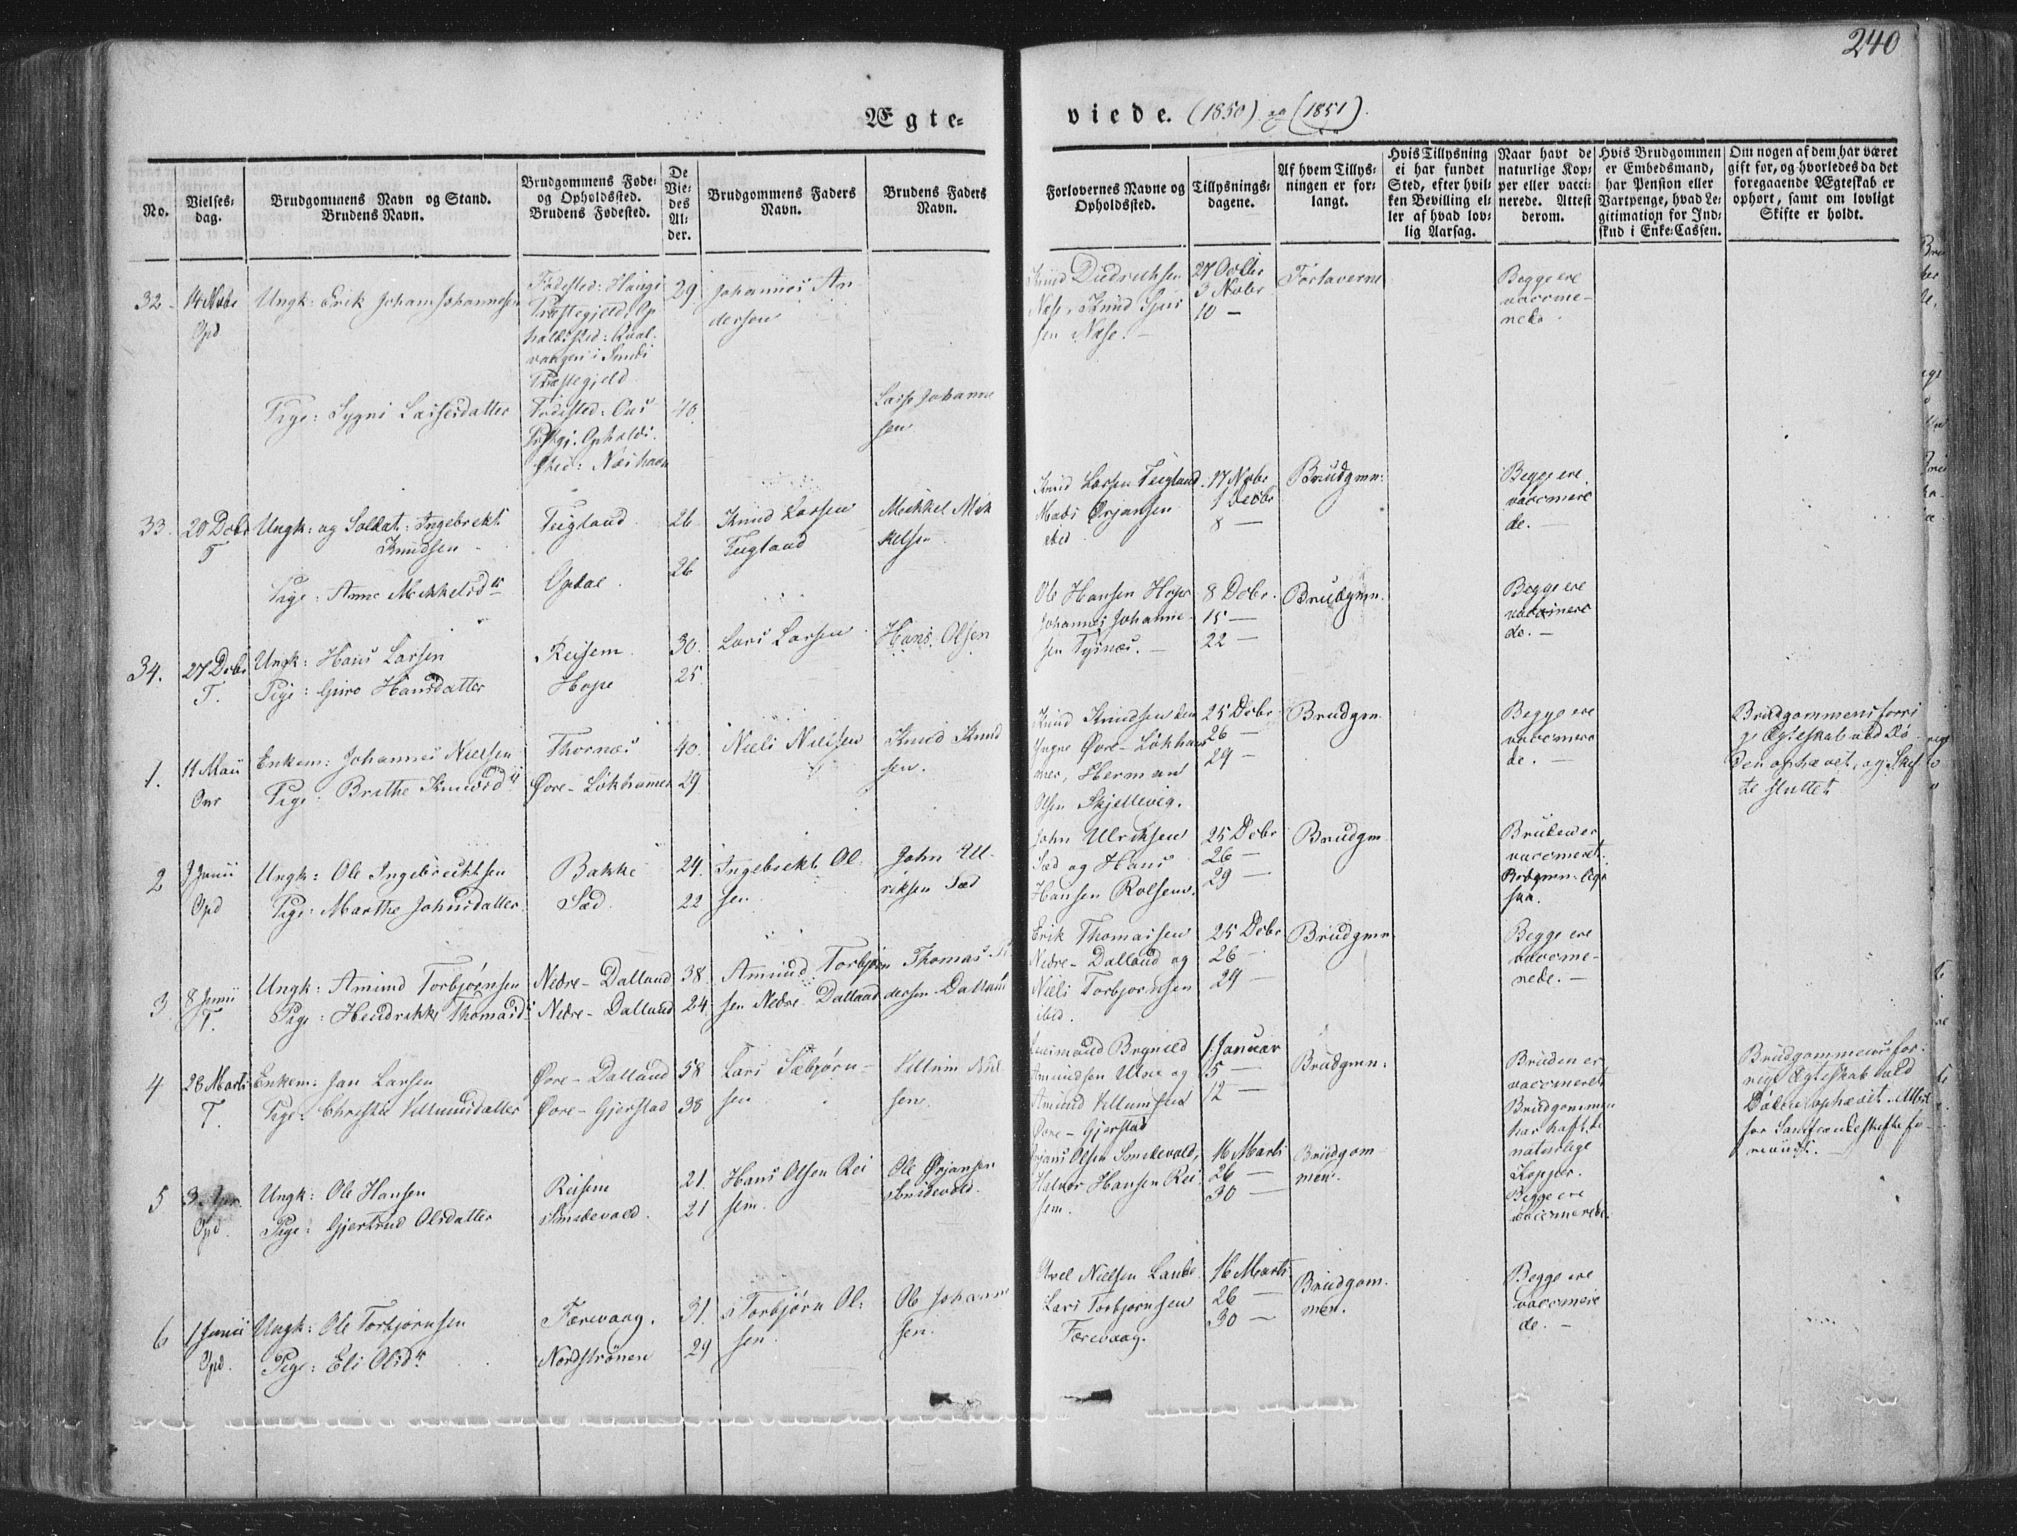 240
Ægte-
viede. (1850) og (1851).
No.
Vielses-
dag.
Brudgommens Navn og Stand.
Brudens Navn.
Brudgommens Føde-
og Opholdssted.
Brudens Fødested.
De
Vie-
des
Al-
der.
Brudgommens Faders
Navn.
Brudens Faders
Navn.
Forlovernes Navne og
Opholdssted.
Tillysnings-
dagene.
Af hvem Tillys-
ningen er for-
langt.
Hvis Tillysning
ei har fundet
Sted, efter hvil-
ken Bevilling el-
ler af hvad lov-
lig Aarsag.
Naar havt de
naturlige Kop-
per eller vacci-
nerede. Attest
derom.
Hvis Brudgommen
er Embedsmand,
har Pension eller
Vartpenge, hvad Le-
gitimation for Ind-
skud i Enke-Cassen.
Om nogen af dem har været
gift før, og hvorledes da det
foregaaende Ægteskab er
ophørt, samt om lovligt
Skifte er holdt.
32
14 Novbr
Opd
Ungk: Erik Johan Johannesen
Fødested: Haugs
Præstegjeld, Op
holdssted:
vaagen i
Præstegjeld
29
Johannes An
dersen
Knud Diedrichsen
Næse, Knud
sen Næse.
27 Octbr
3 Novbr
10 —
Forloverne
Begge ere
vaccine-
rede
Pige: Sygni Larsdatter
Fødested: Ous
Opholds
sted: Næshavn
40
Lars Johanne
sen
33.
20 Debr
T
Ungk: og Soldat: Ingebrekt
Knudsen
Teigland
26
Knud Larsen
Teigland
Mikkel Mik
kelsen
Knud Larsen Teigland
Mads Ørjansen
ibid
17 Novbr
1 Decbr
8 —
Brudgmn:
Begge ere
vaccinere
de. —
Pige: Anna Mikkelsdr
Opdal.
26
34.
27 Debr
T.
Ungk: Hans Larsen
Pige: Guro Hansdatter
Reisem
Hope
30.
25.
Lars Larsen
Hans Olsen
Ole Hansen Hope
Johannes Johanne-
sen Tysnæs. —
8 Debr
15 —
22 —
Brudgmn.
Begge ere
vaccinere
de. —
1.
11 Mai
Onr
Enkem: Johannes Nielsen
Pige: Brithe Knudsdr
Thornæs
Øvre-Løkhammer
40.
29
Niels Nielsen
Knud Knud
sen.
Knud Knudsen den
Yngre Øvre-Løkham
mer, Herman
Olsen Skjellevig.
25 Debr
26 —
29 —
Brudgmn
Begge ere
vaccinere
de. —
Brudgommens forri
ge Ægteskab ved Dø
den ophævet, og Skif
te sluttet
2
Junii
Opd
Ungk: Ole Ingebrechtsen
Pige: Marthe Johnsdatter
Bakke
Sæd.
24.
22
Ingebrekt Ol-
sen.
John Ul-
riksen Sæd
John Ulriksen
Sæd og Hans
Hansen Rolsen.
25 Debr
26 —
29 —
Brudgmn
Bruden er
vaccineret.
Brdgmn: Ogs
saa.
3.
8 Junii
T.
Ungk: Amund Torbjørnsen
Pige: Hendrikke Thomasd
Nedre-Dalland
Nedre-Dalland
38.
24.
Amund Torbjørn
sen Nedre Dalland
Thomas
dersen Dalland
Erik Thomassen
Nedre-Dalland og
Niels Torbjørnsen
ibid.
25 Debr
26 —
29 —
Brudgmn
Begge ere
vaccine-
rede. —
4
26 Marts
T.
Enkem: Jan Larsen
Pige: Christi Villumsdatter
Øvre-Dalland
Øvre-Gjerstad
58
38
Lars Sæbjørn-
sen
Villum Niel
sen.
Brynild
Amundsen Ulve og
Amund Villumsen
Øvre-Gjerstad
1. Januar
5 —
12 —
Brudgmn:
Bruden er
vaccineret
Brudgommen
har haft de
naturlige
Kopper.
Brudgommens for-
rige Ægteskab ved
Døden ophævet. Attest
for Samfrændeskifte fo-
reviist. —
5
3. Apr.
Opd.
Ungk: Ole Hansen
Pige: Gjertrud Olsdatter
Reisem
Smidevold.
21.
21
Hans Olsen Rei
sem.
Ole Ørjansen
Smidevold.
Ørjans Olsen Smidevold,
Halvor Hansen Rei
sem.
16 Marts
26 —
30 —
Brudgom
men.
Begge ere
vaccinerede.
6
1 Junii
Opd.
Ungk: Ole Torbjørnsen
Pige: Eli Olsdr
Færevaag.
Nordstrønen
31.
29
Torbjørn Ol-
sen.
Ole Johanne
sen.
Axel Nielsen Lande
Lars Torbjørnsen
Færevaag.
16 Marts
26 —
30 —
Brudgom
men.
Begge ere
vaccinere
de. —